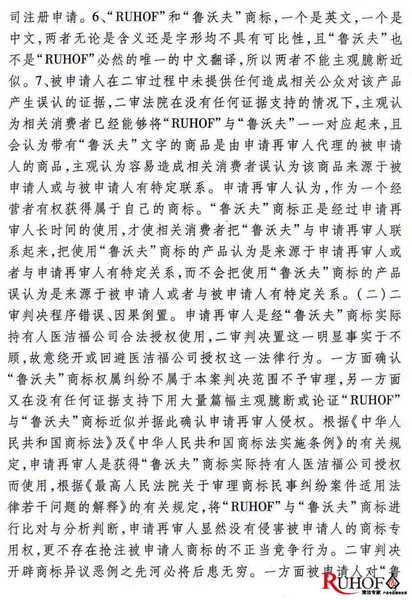 司注册申请。6、“RUHOF”和“鲁沃夫”商标,一个是英文,一个是
中文,两者无论是含义还是字形均不具有可比性,且“鲁沃夫”也
不是“RUHOF”必然的唯一的中文翻译,所以两者不能主观臆断近
似。7、被申请人在二审过程中未提供任何造成相关公众对该产品
产生误认的证据,二审法院在没有任何证据支持的情况下,主观认
为相关消费者已经能够将“RUHOF”与“鲁沃夫”一一对应起来,且
会认为带有“鲁沃夫”文字的商品是由申请再审人代理的被申请
人的商品,主观认为容易造成相关消费者误认为该商品来源于被
申请人或与被申请人有特定联系。申请再审人认为,作为一个经
营者有权获得属于自己的商标。“鲁沃夫”商标正是经过申请再
审人长时间的使用,才使相关消费者把“鲁沃夫”与申请再审人联
系起来,把使用“鲁沃夫”商标的产品认为是来源于申请再审人或
者与申请再审人有特定关系,而不会把使用“鲁沃夫”商标的产品
误认为是来源于被申请人或者与被申请人有特定关系。(二)二
审判决程序错误、因果倒置。申请再审人是经“鲁沃夫”商标实际
持有人医洁福公司合法授权使用,二审判决置这一明显事实于不
顾,故意绕开或回避医洁福公司授权这一法律行为。一方面确认
“鲁沃夫”商标权属纠纷不属于本案判决范围不予审理,另一方面
又在没有任何证据支持下用大量篇幅主观臆断或论证“RUHOF”
与“鲁沃夫”商标近似并据此确认申请再审人侵权。根据《中华人
民共和国商标法》及《中华人民共和国商标法实施条例》的有关规
定,申请再审人是获得“鲁沃夫”商标实际持有人医洁福公司授权
而使用,根据《最高人民法院关于审理商标民事纠纷案件适用法
律若干问题的解释》的有关规定,将“RUHOF”与“鲁沃夫”商标进
行比对与分析判断,申请再审人显然没有侵害被申请人的商标专
用权,更不存在抢注被申请人商标的不正当竞争行为。二审判决
开辟商标异议恶例之先河必将后患无穷。一方面被申请人对“鲁
RUHOF